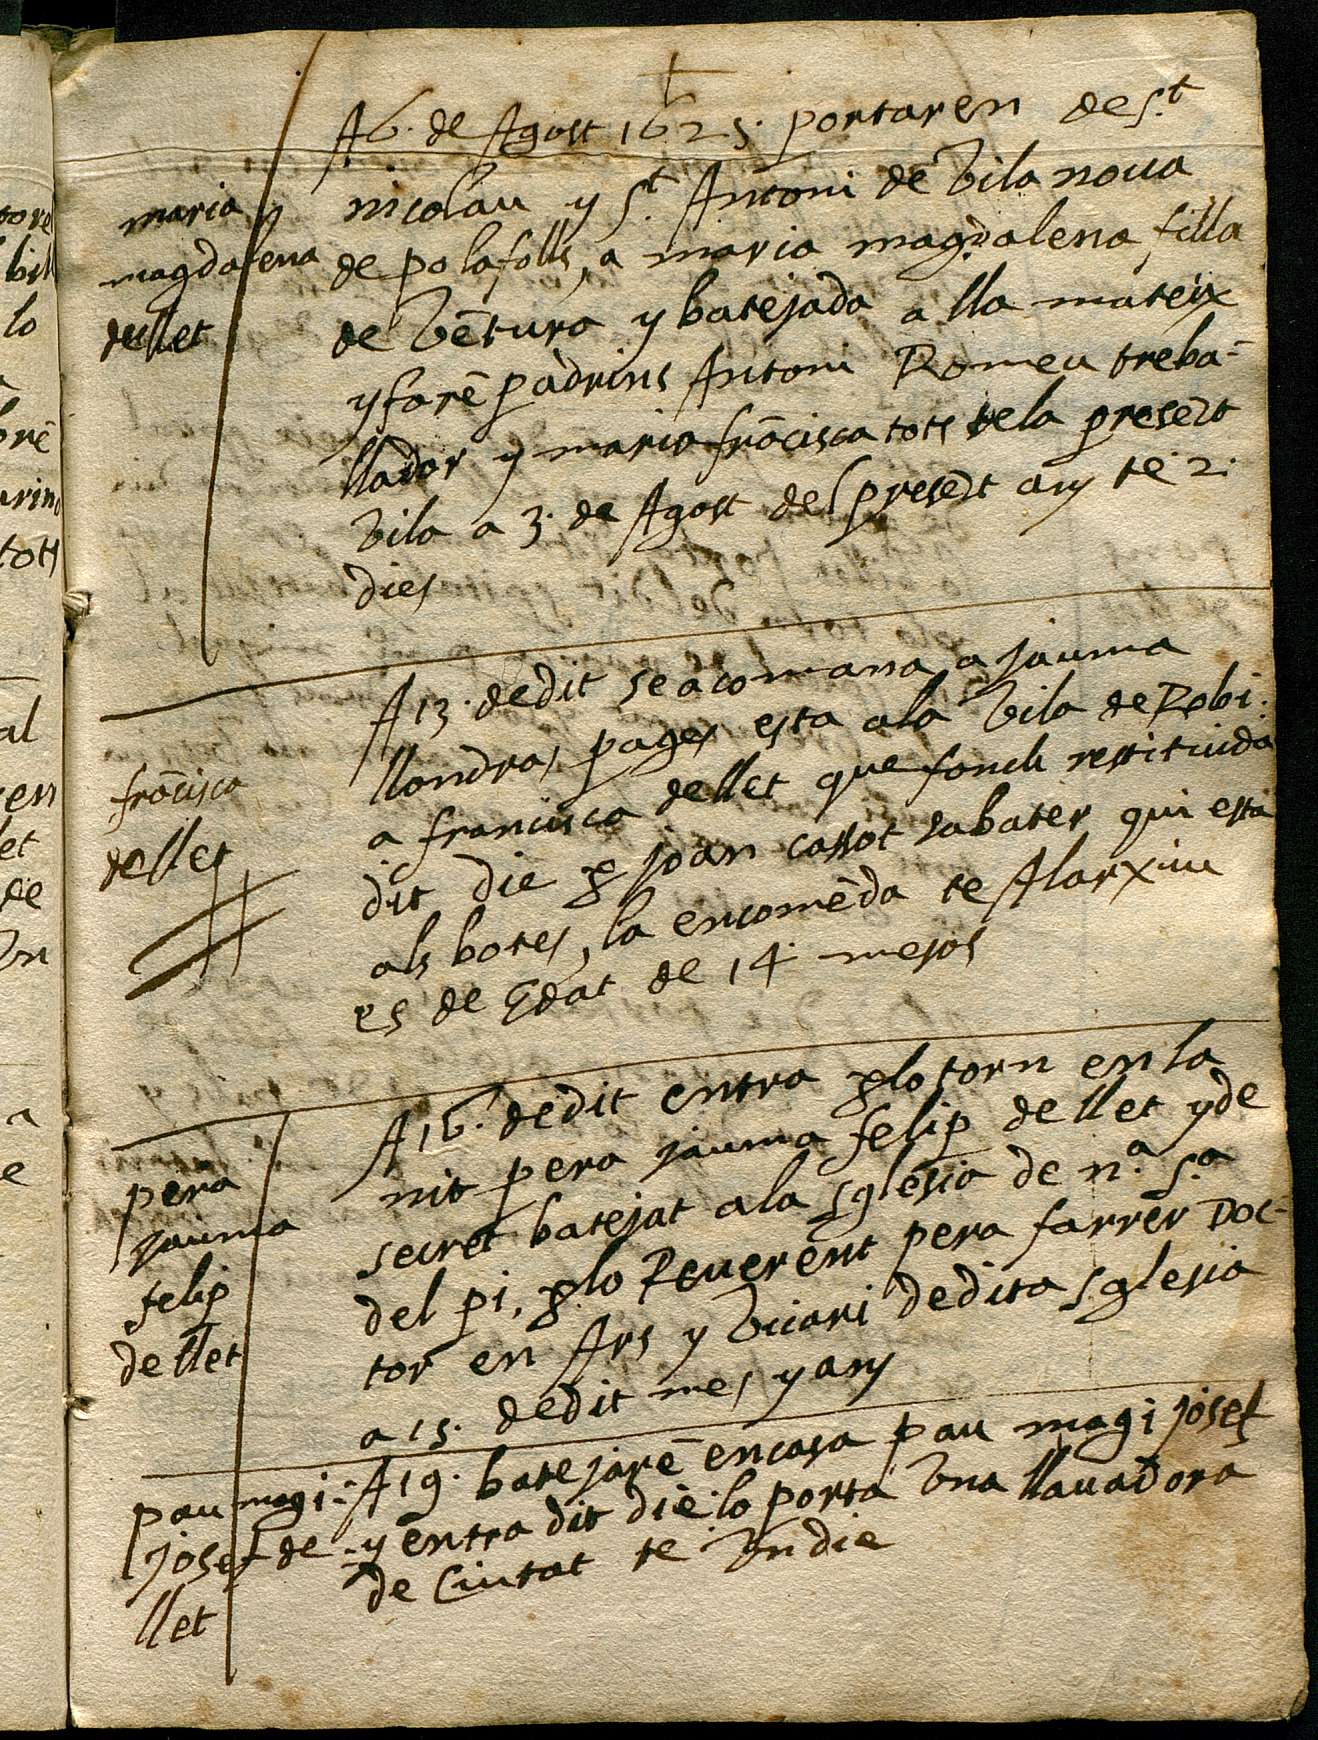 A 6. de Agost 1625. portaren de S.t
maria y
magdalena
de llet
nicolau y S.t Antoni de Vila noua
de palafolls, a maria magdalena filla
de Vẽtura y batejada a lla mateix
y forẽ padrins Antoni Romeu treba-
llador y maria frãcisca tots de la presẽt
Vila a 3. de Agost del presẽt any te 2.
dies
frãcisca
de llet
A 13. de dit se acomana a jauma
llondra, pages esta a la Vila de Robi.
a francisca de llet que fonch restituida
dit die p joan cassot sabater qui esta
als botes, la encomẽda te Alarxiu
es de Edat de 14 mesos
pera
jauma
felip
de llet
A 16. de dit entra plo torn en la
nit pera jauma felip de llet y de
secret batejat a la Sglesia de n.a S.a
del pi, plo Reuerent pera farrer Doc-
tor en Ars y Vicari de dita Sglesia
a 15. de dit mes y any
pau magi
josef de
llet
A 19. batejarẽ en casa pau magi josef
y entra dit die lo porta Vna llauadora
de Ciutat te Vn die